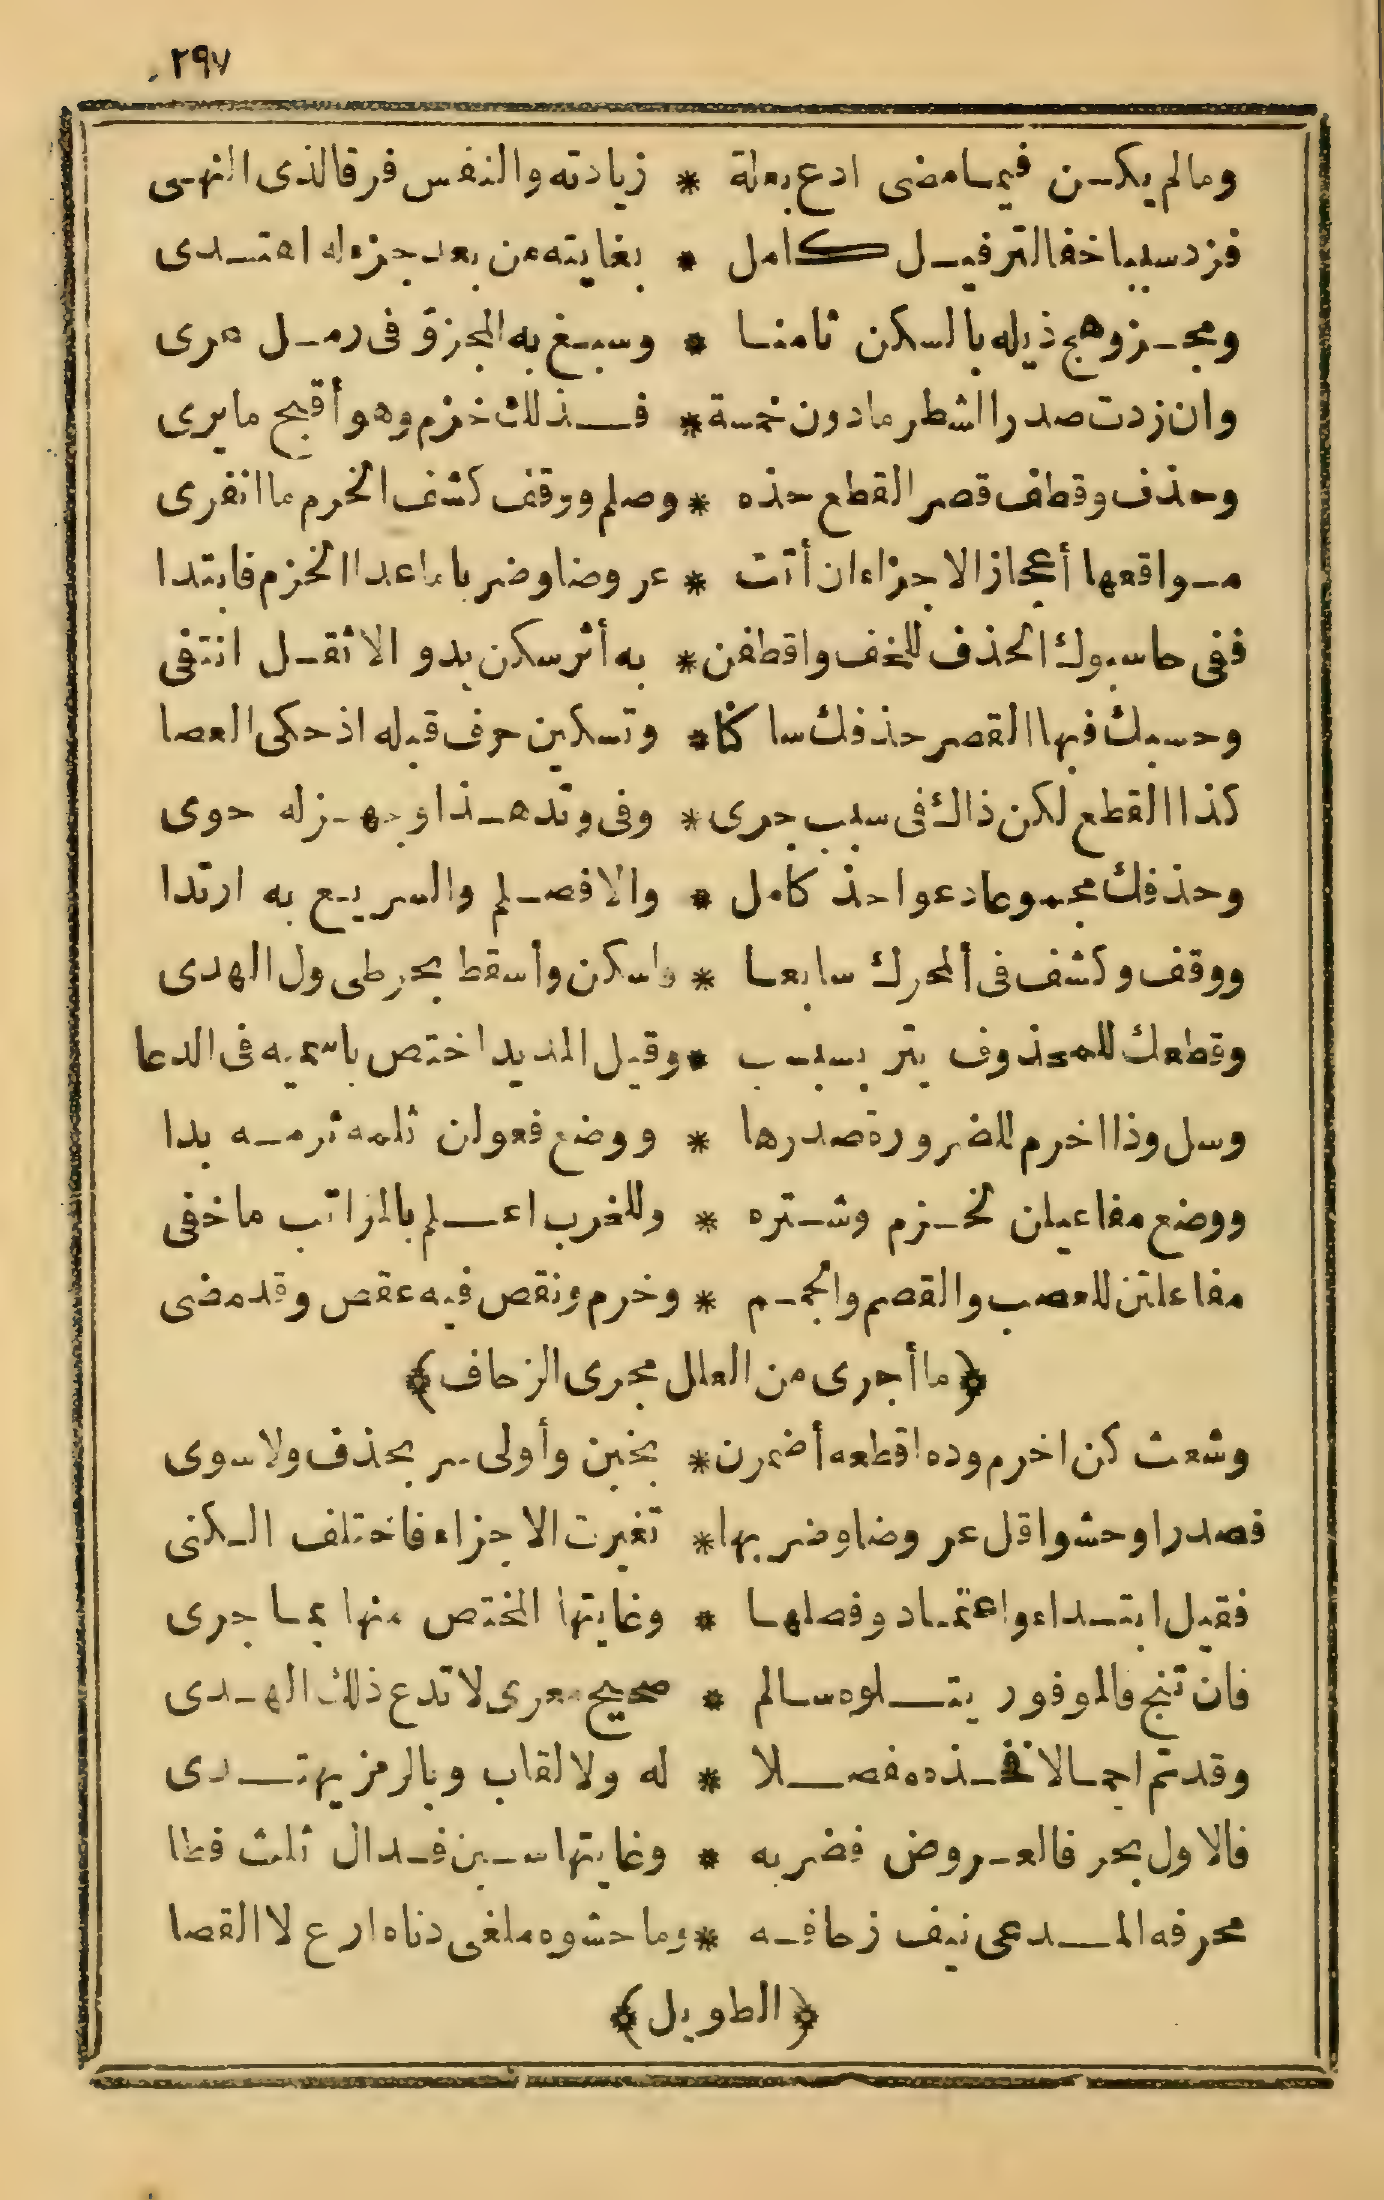 ٢٩٧
ومالم يكن فيما مضى ادع بعلة * زيادته والنقص فرقا لذى النهى
فزد سببا خفا لترفيل كامل * بغايته من بعد جزء له اهتدى
ومجزو هج ذيله بالسكن ثامنا * وسبغ به المجزؤ فى رمل عرى
وان زدت صدر الشطر مادون خمسة * فذلك خزم وهو أقبح مايرى
وحذف وقطف قصر القطع حذه * وصلم ووقف كشف الخرم ما انفرى
مواقعها أعجاز الاجزاء ان أتت * عروضا وضربا ماعدا الخزم فابتدا
ففى حاسبوك الحذف للخف واقطفن * به أثر سكن بدو الاثقل انتفى
وحسبك فيها القصر حذفك ساكنا * وتسكين حرف قبله اذ حكى العصا
كذا القطع لكن ذاك فى سبب جرى * وفى وتد هذا وجهز له حوى
وحذفك مجموعا دعوا حذ كامل * والا فصلم والسريع به ارتدا
ووقف وكشف فى المحرك سابعا * واسكن وأسقط بحر طى ول الهدى
وقطعك للمحذوف بتر بسبب * وقيل المديد اختص باسميه فى الدعا
وسل وذا اخرم للضرورة صدرها * ووضع فعولن ثلمه ثرمه بدا
ووضع مفاعيلن لخزم وشتره * وللخرب اعلم بالمراتب ماخفى
مفاعلتن للعصب والقصم والجمم * وخرم ونقص فيه عقص وقد مضى
﴿ما أجرى من العلل مجرى الزحاف﴾
وشعث كن اخرم وده اقطعه أضمرن * بخبن وأولى سر بحذف ولا سوى
فصدرا وحشوا قل عروضا وضربها * تغيرت الاجزاء فاختلف الكنى
فقيل ابتداء واعتماد وفصلها * وغايتها المختص منها بما جرى
فان تنج فالموفور يتلوه سالم * صحيح معرى لا تدع ذلك الهدى
وقد تم اجمالا فخذه مفصلا * له ولالقاب وبالرمز يهتدى
فالاول بحر فالعروض فضربه * وغايتها سين فدال ثلث فطا
محرفه المدعى نيف زحافه * وما حشوه ملغى دناه ارع لا القصا
﴿الطويل﴾